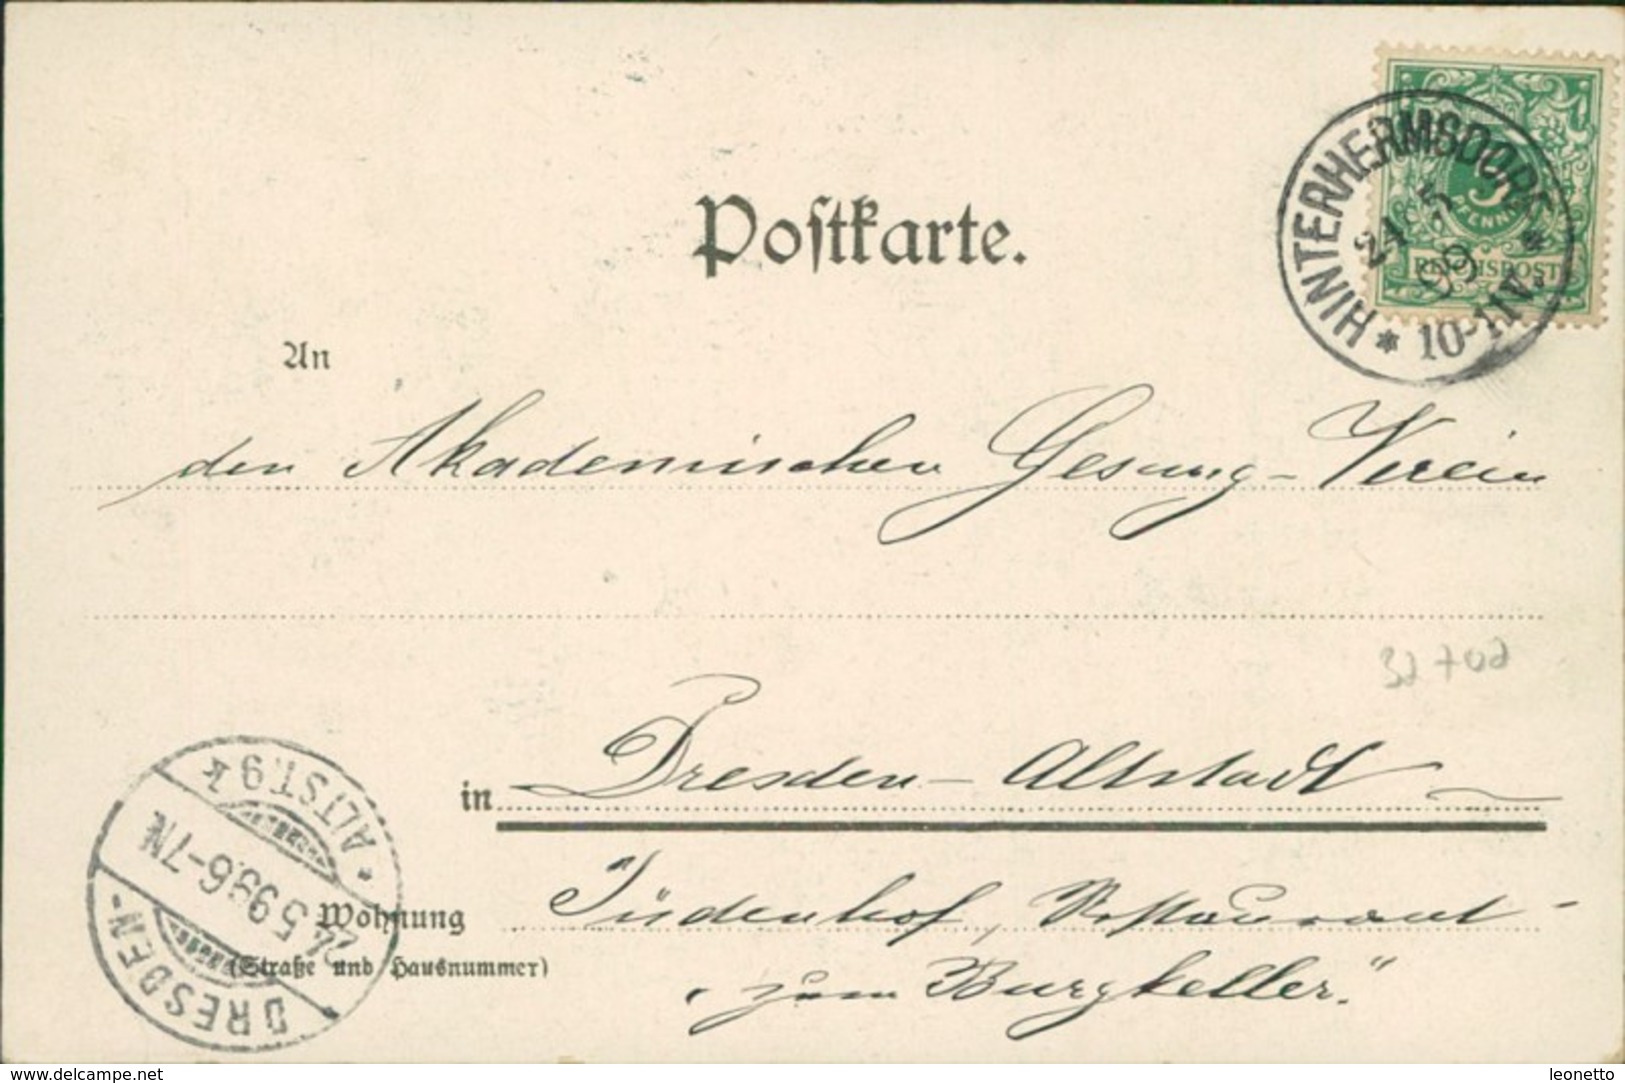 Postkarte.
HINTERHERMSDORF
24 5
99
* 10-11V. *
5
PFENNIG
REICHSPOST
An
den Akademischen Gesang-Verein
32702
in Dresden-Altstadt
Wohnung Jüdenhof, Restaurant
(Straße und Hausnummer)
„zum Burgkeller."
* ALTST. 9 k
24.5.99.6-7N.
DRESDEN-
www.delcampe.net
leonetto